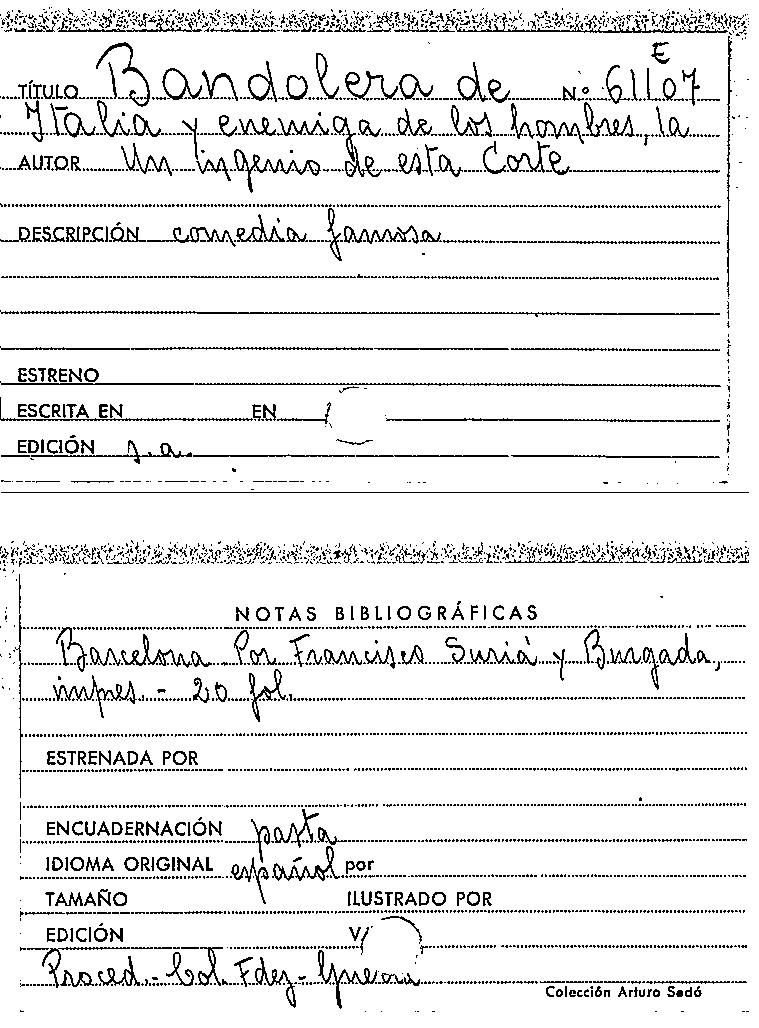 E
TÍTULO Bandolera de Nº 61107
Italia y enemiga de los hombres, la
AUTOR Un ingenio de esta Corte
DESCRIPCIÓN comedia famosa
ESTRENO
ESCRITA EN EN
EDICIÓN s.a.
NOTAS BIBLIOGRÁFICAS
Barcelona. Por Francisco Suriá y Burgada,
impres. - 20 fol.
ESTRENADA POR
ENCUADERNACIÓN pasta
IDIOMA ORIGINAL español por
TAMAÑO ILUSTRADO POR
EDICIÓN V/
Proced.- Col. Fdez- Guerra
Colección Arturo Sedó